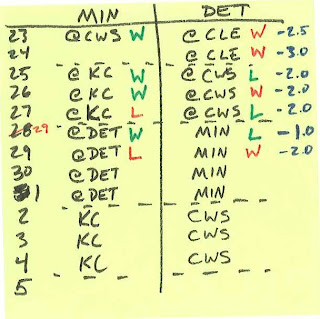 MIN DET
23 @CWS W @CLE W -2.5
24 @CLE W -3.0
25 @KC W @CWS L -2.0
26 @KC W @CWS W -2.0
27 @KC L @CWS L -2.0
29 @DET W MIN L -1.0
29 @DET L MIN W -2.0
30 @DET MIN
1 @DET MIN
2 KC CWS
3 KC CWS
4 KC CWS
5